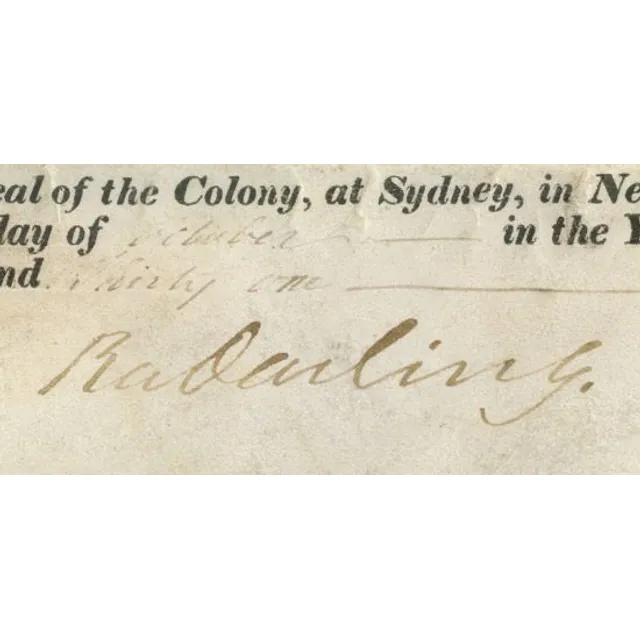 eal of the Colony, at Sydney, in Ne
lay of October in the Y
nd Thirty one
Ra Darling.